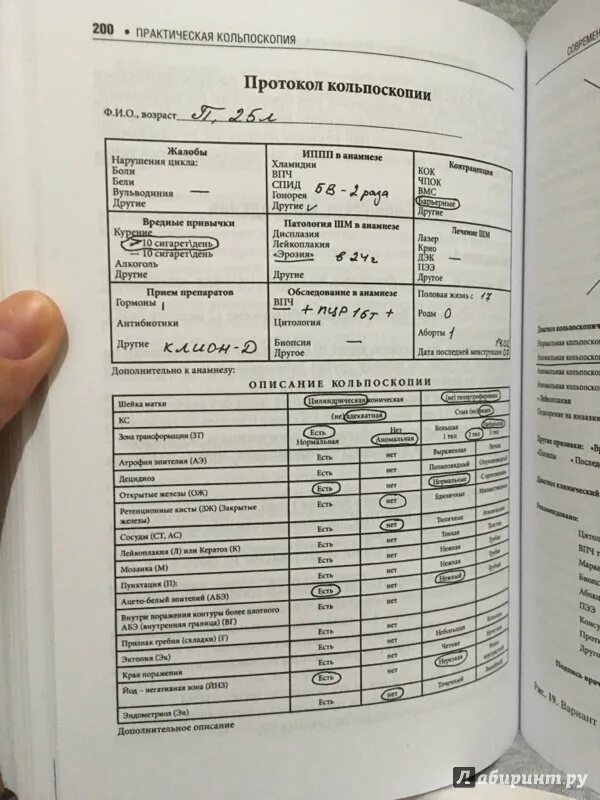 200 • ПРАКТИЧЕСКАЯ КОЛЬПОСКОПИЯ
Протокол кольпоскопии
Ф.И.О., возраст П, 25л
Жалобы
Нарушения цикла:
Боли
Бели
Вульводиния —
Другие
ИППП в анамнезе
Хламидии
ВПЧ
СПИД БВ - 2 раза
Гонорея
Другие
Контрацепция
КОК
ЧПОК
ВМС
Барьерные
Другие
Вредные привычки
Курение
> 10 сигарет\день
— 10 сигарет\день
Алкоголь
Другие
Патология ШМ в анамнезе
Дисплазия
Лейкоплакия
«Эрозия» в 24г
Другие
Лечение ШМ
Лазер
Крио
ДЭК —
ПЭЭ
Другое
Прием препаратов
Гормоны
Антибиотики
Другие КЛИОН-Д
Обследование в анамнезе
ВПЧ + ПЦР 16т +
Цитология
Биопсия —
Другое
Половая жизнь с 17
Роды 0
Аборты 1
Дата последней менструации
Дополнительно к анамнезу:
ОПИСАНИЕ КОЛЬПОСКОПИИ
Шейка матки Цилиндрическая коническая (не) гипертрофирована
КС (не) адекватная Стык (не) виден
Зона трансформации (ЗТ) Есть Нет Большая
Нормальная Аномальная 1 тип 2 тип 3 тип
Атрофия эпителия (АЭ) Есть нет Выраженная Легкая
Децидиоз Есть нет Полиповидный Опухолевидный
Открытые железы (ОЖ) Есть нет Нормальные
Ретенционные кисты (ЗЖ) (Закрытые железы) Есть нет Единичные Множественные
Сосуды (СТ, АС) Есть нет Типичные Атипические
Лейкоплакия (Л) или Кератоз (К) Есть нет Тонкая Толстая
Мозаика (М) Есть нет Нежная Грубая
Пунктация (П): Есть нет Нежная Грубая
Ацето-белый эпителий (АБЭ) Есть нет Нежный Грубый
Внутри поражения контуры более плотного АБЭ (внутренняя граница) (ВГ) Есть нет
Признак гребня (складки) (Г) Есть нет
Эктопия (Эк) Есть нет Небольшая Большая
Края поражения Есть нет Четкие
Йод – негативная зона (ЙНЗ) Есть нет Нерезкая
Эндометриоз (Эн) Есть нет Точечный
Дополнительное описание
СОВРЕМЕН
Диагноз кольпоскопич
Нормальная кольпоскоп
• Лейкоплакия
Подозрение на инвазив
Другие признаки:
Диагноз клинический
Рекомендовано:
Цитол
ВПЧ т
Марке
Биопс
Абляц
ПЭЭ
Консу
Проти
Друго
Подпись врач
Рис. 19. Вариант
Лабиринт.ру